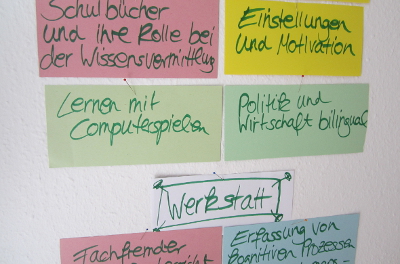 Schulbücher
und ihre Rolle bei
der Wissensvermittlung
Einstellungen
und Motivation
Lernen mit
Computerspielen
Politik und
Wirtschaft bilingual
Werkstatt
Fachfremder
Erfassung von
kognitiven Prozessen